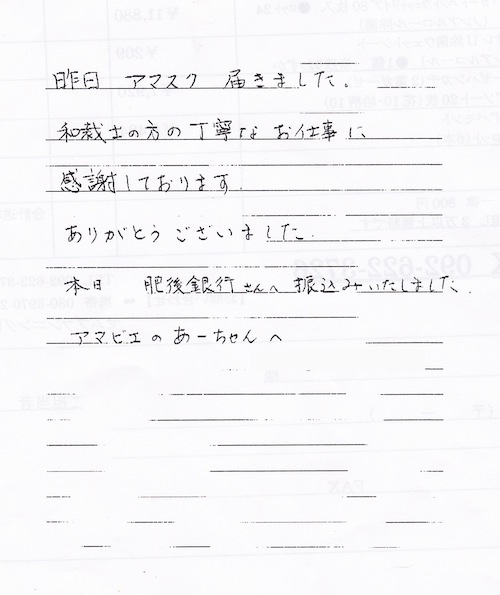 昨日 アマスク 届きました。
和裁士の方の丁寧なお仕事に
感謝しております.
ありがとうございました.
本日 肥後銀行さんへ振込みいたしました.
アマビエのあーちゃんへ